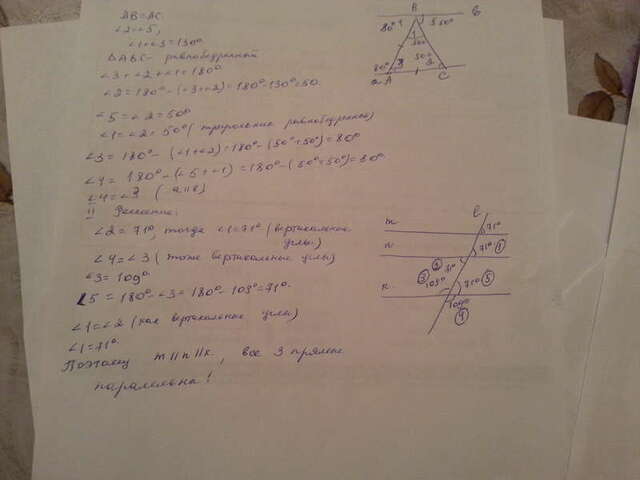 AB=AC.
∠2=∠5,
∠1+∠3=130°
ΔABC- равнобедренный
∠3+∠2+∠1=180°
∠2=180°-(∠3+∠2)=180°-130°=50.
∠5=∠2=50°
∠1=∠2=50° (треугольник равнобедренный)
∠3= 180°-(∠1+∠2)=180°-(50°+50°)=80°
∠4= 180°-(∠5+∠1)=180°-(50°+50°)=80°.
∠4=∠3 (a||b)
B
b
80° 4
5 50°
1
50°
50°
80° 3
2
a A
C
II Решение:
∠2=71°, тогда ∠1=71° (вертикальные
углы)
∠4=∠3 (тоже вертикальные углы)
∠3=109°
∠5=180°-∠3=180°-109°=71°.
∠1=∠2 (как вертикальные углы)
∠1=71°
Поэтому m||n||k, все 3 прямые
паралельны!
l
m
71°
n
71° 1
2 71°
3
109°
71° 5
k.
109°
4